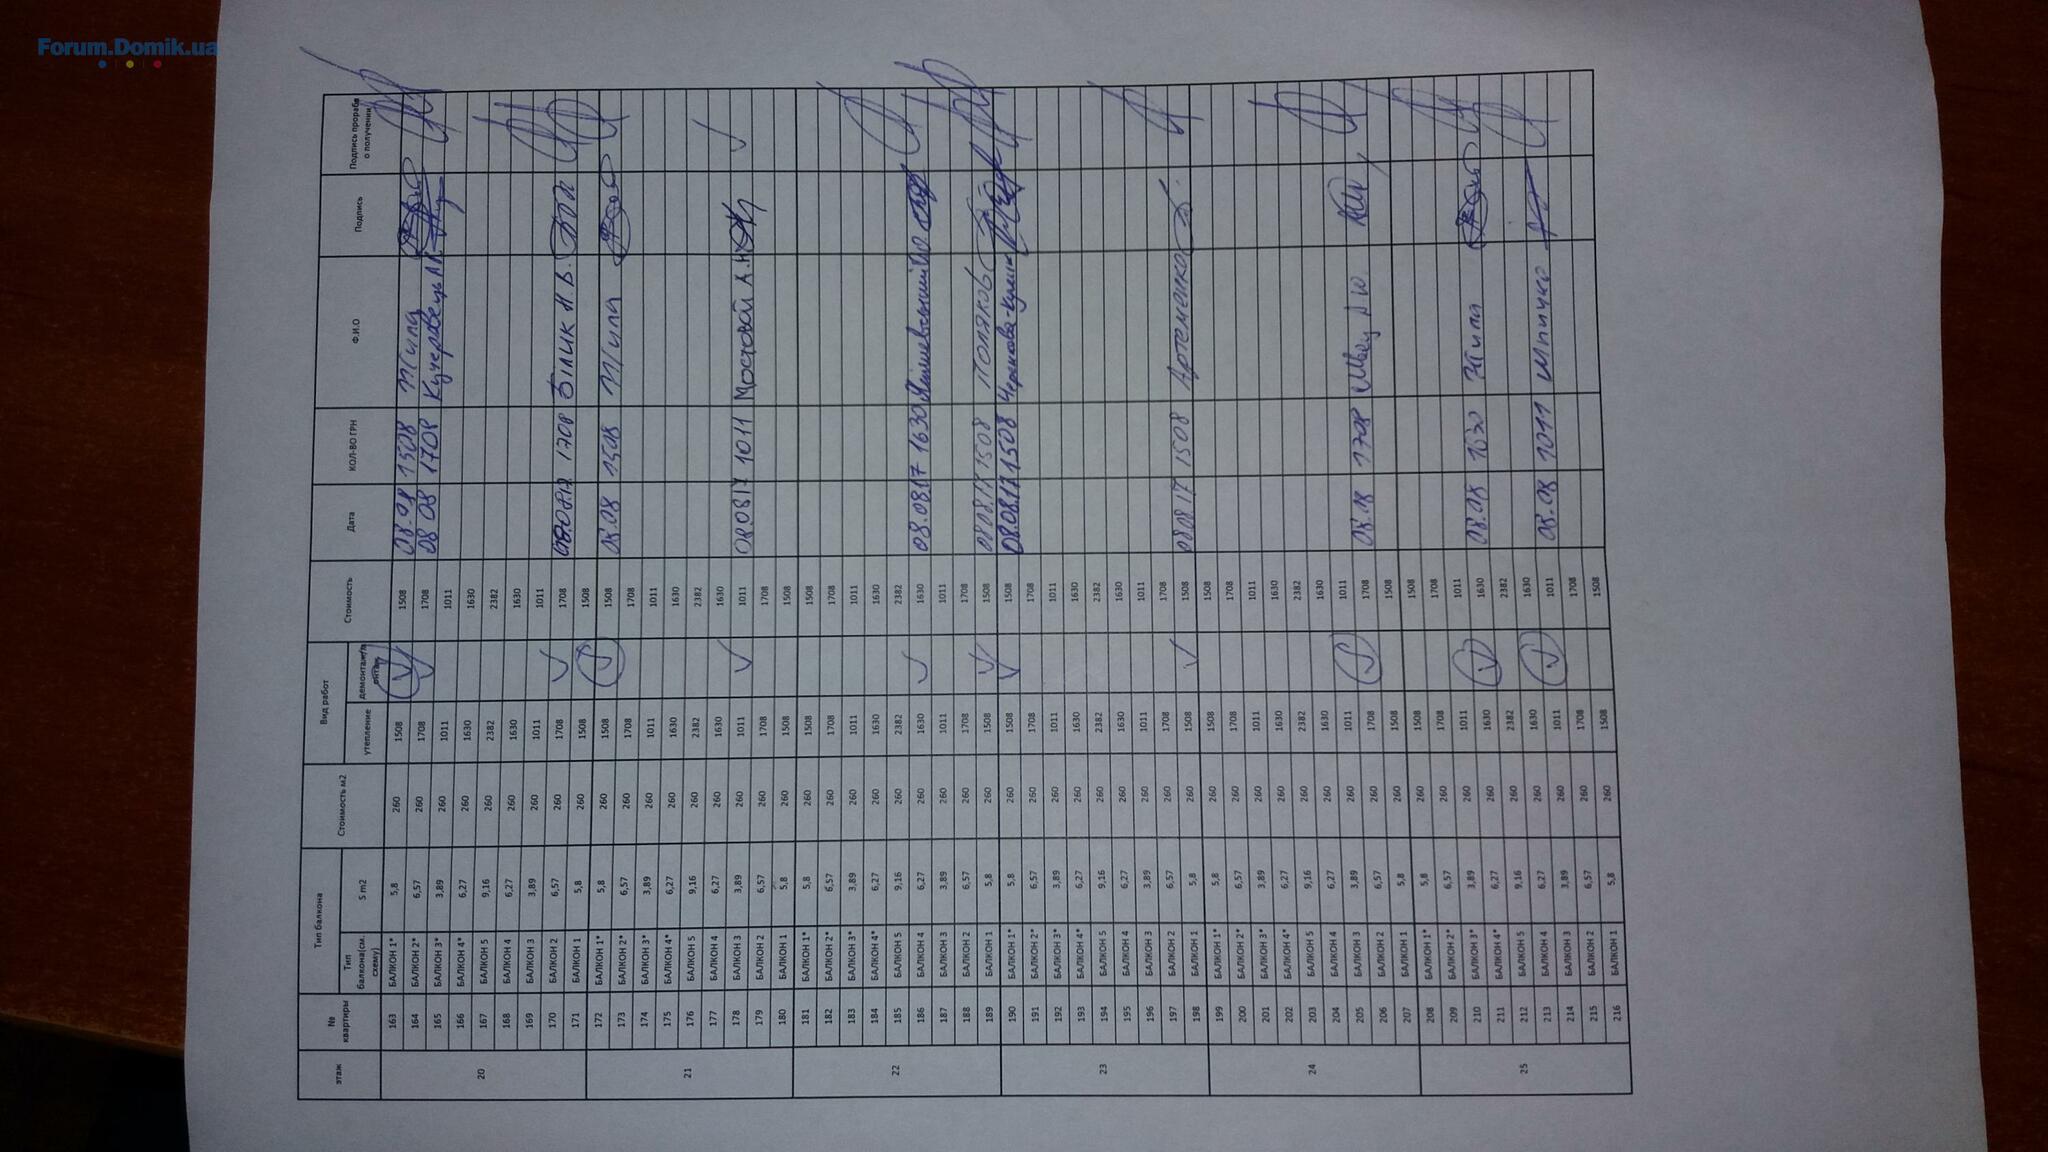 Forum.Domik.ua
этаж № квартиры Тип балкона Стоимость м2 Вид работ Стоимость Дата КОЛ-ВО ГРН Ф.И.О Подпись Подпись прораба о получении
Тип балкона(см. схему) S m2 утепление демонтаж/монтаж
20
163 БАЛКОН 1* 5,8 260 1508 1508 08.08 1508 Жила
164 БАЛКОН 2* 6,57 260 1708 1708 08 08 1708 Кучеровець
165 БАЛКОН 3* 3,89 260 1011 1011
166 БАЛКОН 4* 6,27 260 1630 1630
167 БАЛКОН 5 9,16 260 2382 2382
168 БАЛКОН 4 6,27 260 1630 1630
169 БАЛКОН 3 3,89 260 1011 1011
170 БАЛКОН 2 6,57 260 1708 1708 08.08.17 1708 Білик Н.В.
171 БАЛКОН 1 5,8 260 1508 1508
21
172 БАЛКОН 1* 5,8 260 1508 1508 08.08 1508 Жила
173 БАЛКОН 2* 6,57 260 1708 1708
174 БАЛКОН 3* 3,89 260 1011 1011
175 БАЛКОН 4* 6,27 260 1630 1630
176 БАЛКОН 5 9,16 260 2382 2382
177 БАЛКОН 4 6,27 260 1630 1630
178 БАЛКОН 3 3,89 260 1011 1011 080817 1011 Мостовой А.Н
179 БАЛКОН 2 6,57 260 1708 1708
180 БАЛКОН 1 5,8 260 1508 1508
22
181 БАЛКОН 1* 5,8 260 1508 1508
182 БАЛКОН 2* 6,57 260 1708 1708
183 БАЛКОН 3* 3,89 260 1011 1011
184 БАЛКОН 4* 6,27 260 1630 1630
185 БАЛКОН 5 9,16 260 2382 2382
186 БАЛКОН 4 6,27 260 1630 1630 08.0817 1630
187 БАЛКОН 3 3,89 260 1011 1011
188 БАЛКОН 2 6,57 260 1708 1708
189 БАЛКОН 1 5,8 260 1508 1508 0808.17 1508 Поляков
23
190 БАЛКОН 1* 5,8 260 1508 1508 08.08.17 1508
191 БАЛКОН 2* 6,57 260 1708 1708
192 БАЛКОН 3* 3,89 260 1011 1011
193 БАЛКОН 4* 6,27 260 1630 1630
194 БАЛКОН 5 9,16 260 2382 2382
195 БАЛКОН 4 6,27 260 1630 1630
196 БАЛКОН 3 3,89 260 1011 1011
197 БАЛКОН 2 6,57 260 1708 1708
198 БАЛКОН 1 5,8 260 1508 1508 0808.17 1508 Артеменко
24
199 БАЛКОН 1* 5,8 260 1508 1508
200 БАЛКОН 2* 6,57 260 1708 1708
201 БАЛКОН 3* 3,89 260 1011 1011
202 БАЛКОН 4* 6,27 260 1630 1630
203 БАЛКОН 5 9,16 260 2382 2382
204 БАЛКОН 4 6,27 260 1630 1630
205 БАЛКОН 3 3,89 260 1011 1011
206 БАЛКОН 2 6,57 260 1708 1708 08.08 1708 Швец
207 БАЛКОН 1 5,8 260 1508 1508
25
208 БАЛКОН 1* 5,8 260 1508 1508
209 БАЛКОН 2* 6,57 260 1708 1708
210 БАЛКОН 3* 3,89 260 1011 1011
211 БАЛКОН 4* 6,27 260 1630 1630 08.08 1630 Жила
212 БАЛКОН 5 9,16 260 2382 2382
213 БАЛКОН 4 6,27 260 1630 1630
214 БАЛКОН 3 3,89 260 1011 1011 08.08 1011
215 БАЛКОН 2 6,57 260 1708 1708
216 БАЛКОН 1 5,8 260 1508 1508